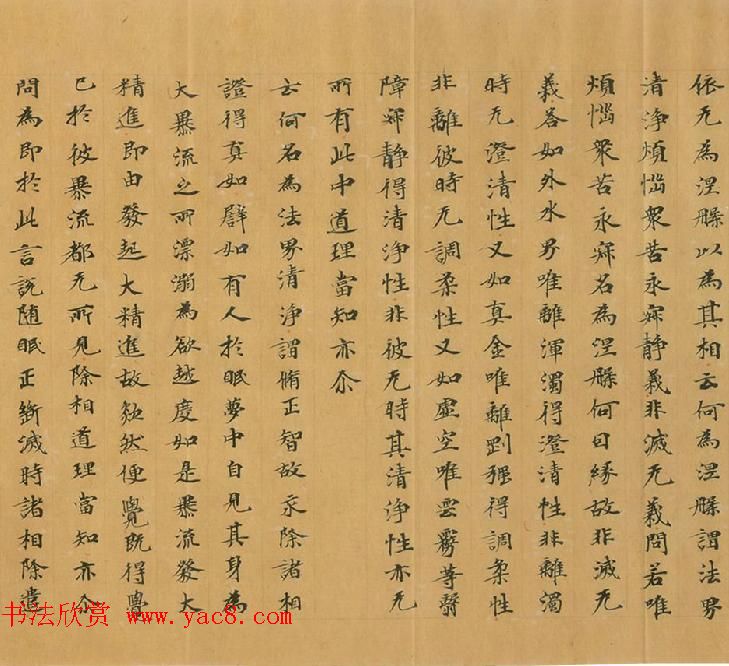 依无为涅槃以為其相云何為涅槃謂法界
清浄煩惱衆苦永寂静義非滅无義問若唯
煩惱衆苦永寂名為涅槃何曰縁故非滅无
義荅如外水界唯離渾濁得澄清性非離濁
時无澄清性又如真金唯離剛强得調柔性
非離彼時无調柔性又如虚空唯雲霧等翳
障寂静得清浄性非彼无時其清浄性亦无
所有此中道理當知亦尒
云何名為法界清浄謂脩正智故永除諸相
證得真如譬如有人於眠夢中自見其身為
大暴流之所漂溺為欲越度如是暴流發大
精進即由發起大精進故欻然便覺既得覺
已於彼暴流都无所見除相道理當知亦尒
問為即於此言説随眠正斷滅時諸相除遣
书法欣赏 www.yac8.com